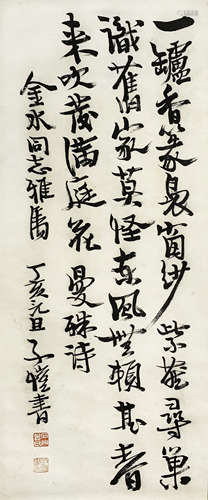 一罏香篆裊窗紗紫燕尋巢
識舊家莫怪東風無賴甚春
来吹發滿庭花 曼殊詩
金水同志雅属
丁亥元旦 子愷書